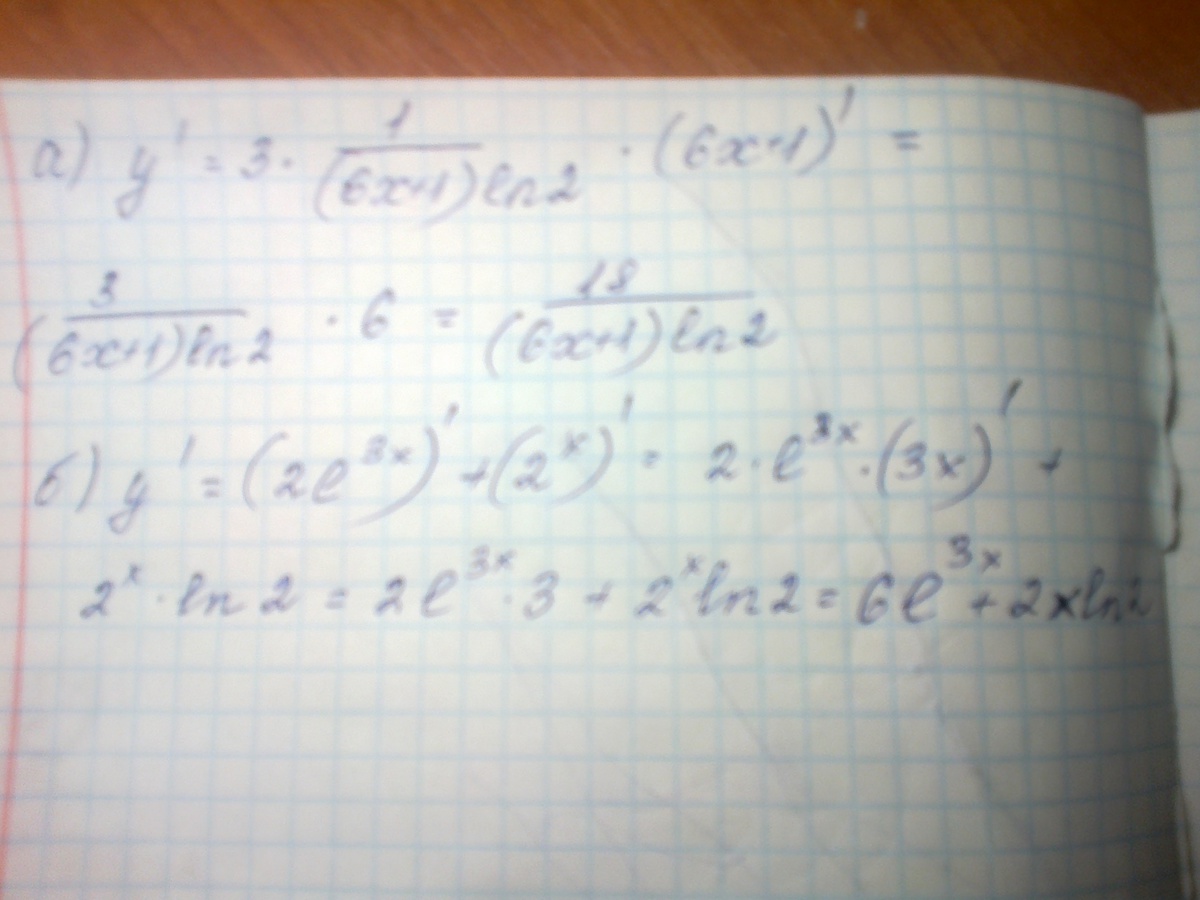 а) y' = 3 · 1/((6x+1) ln 2) · (6x+1)' =
3/((6x+1) ln 2) · 6 = 18/((6x+1) ln 2)
б) y' = (2e^(3x))' + (2^x)' = 2 · e^(3x) · (3x)' +
2^x · ln 2 = 2e^(3x) · 3 + 2^x ln 2 = 6e^(3x) + 2x ln 2